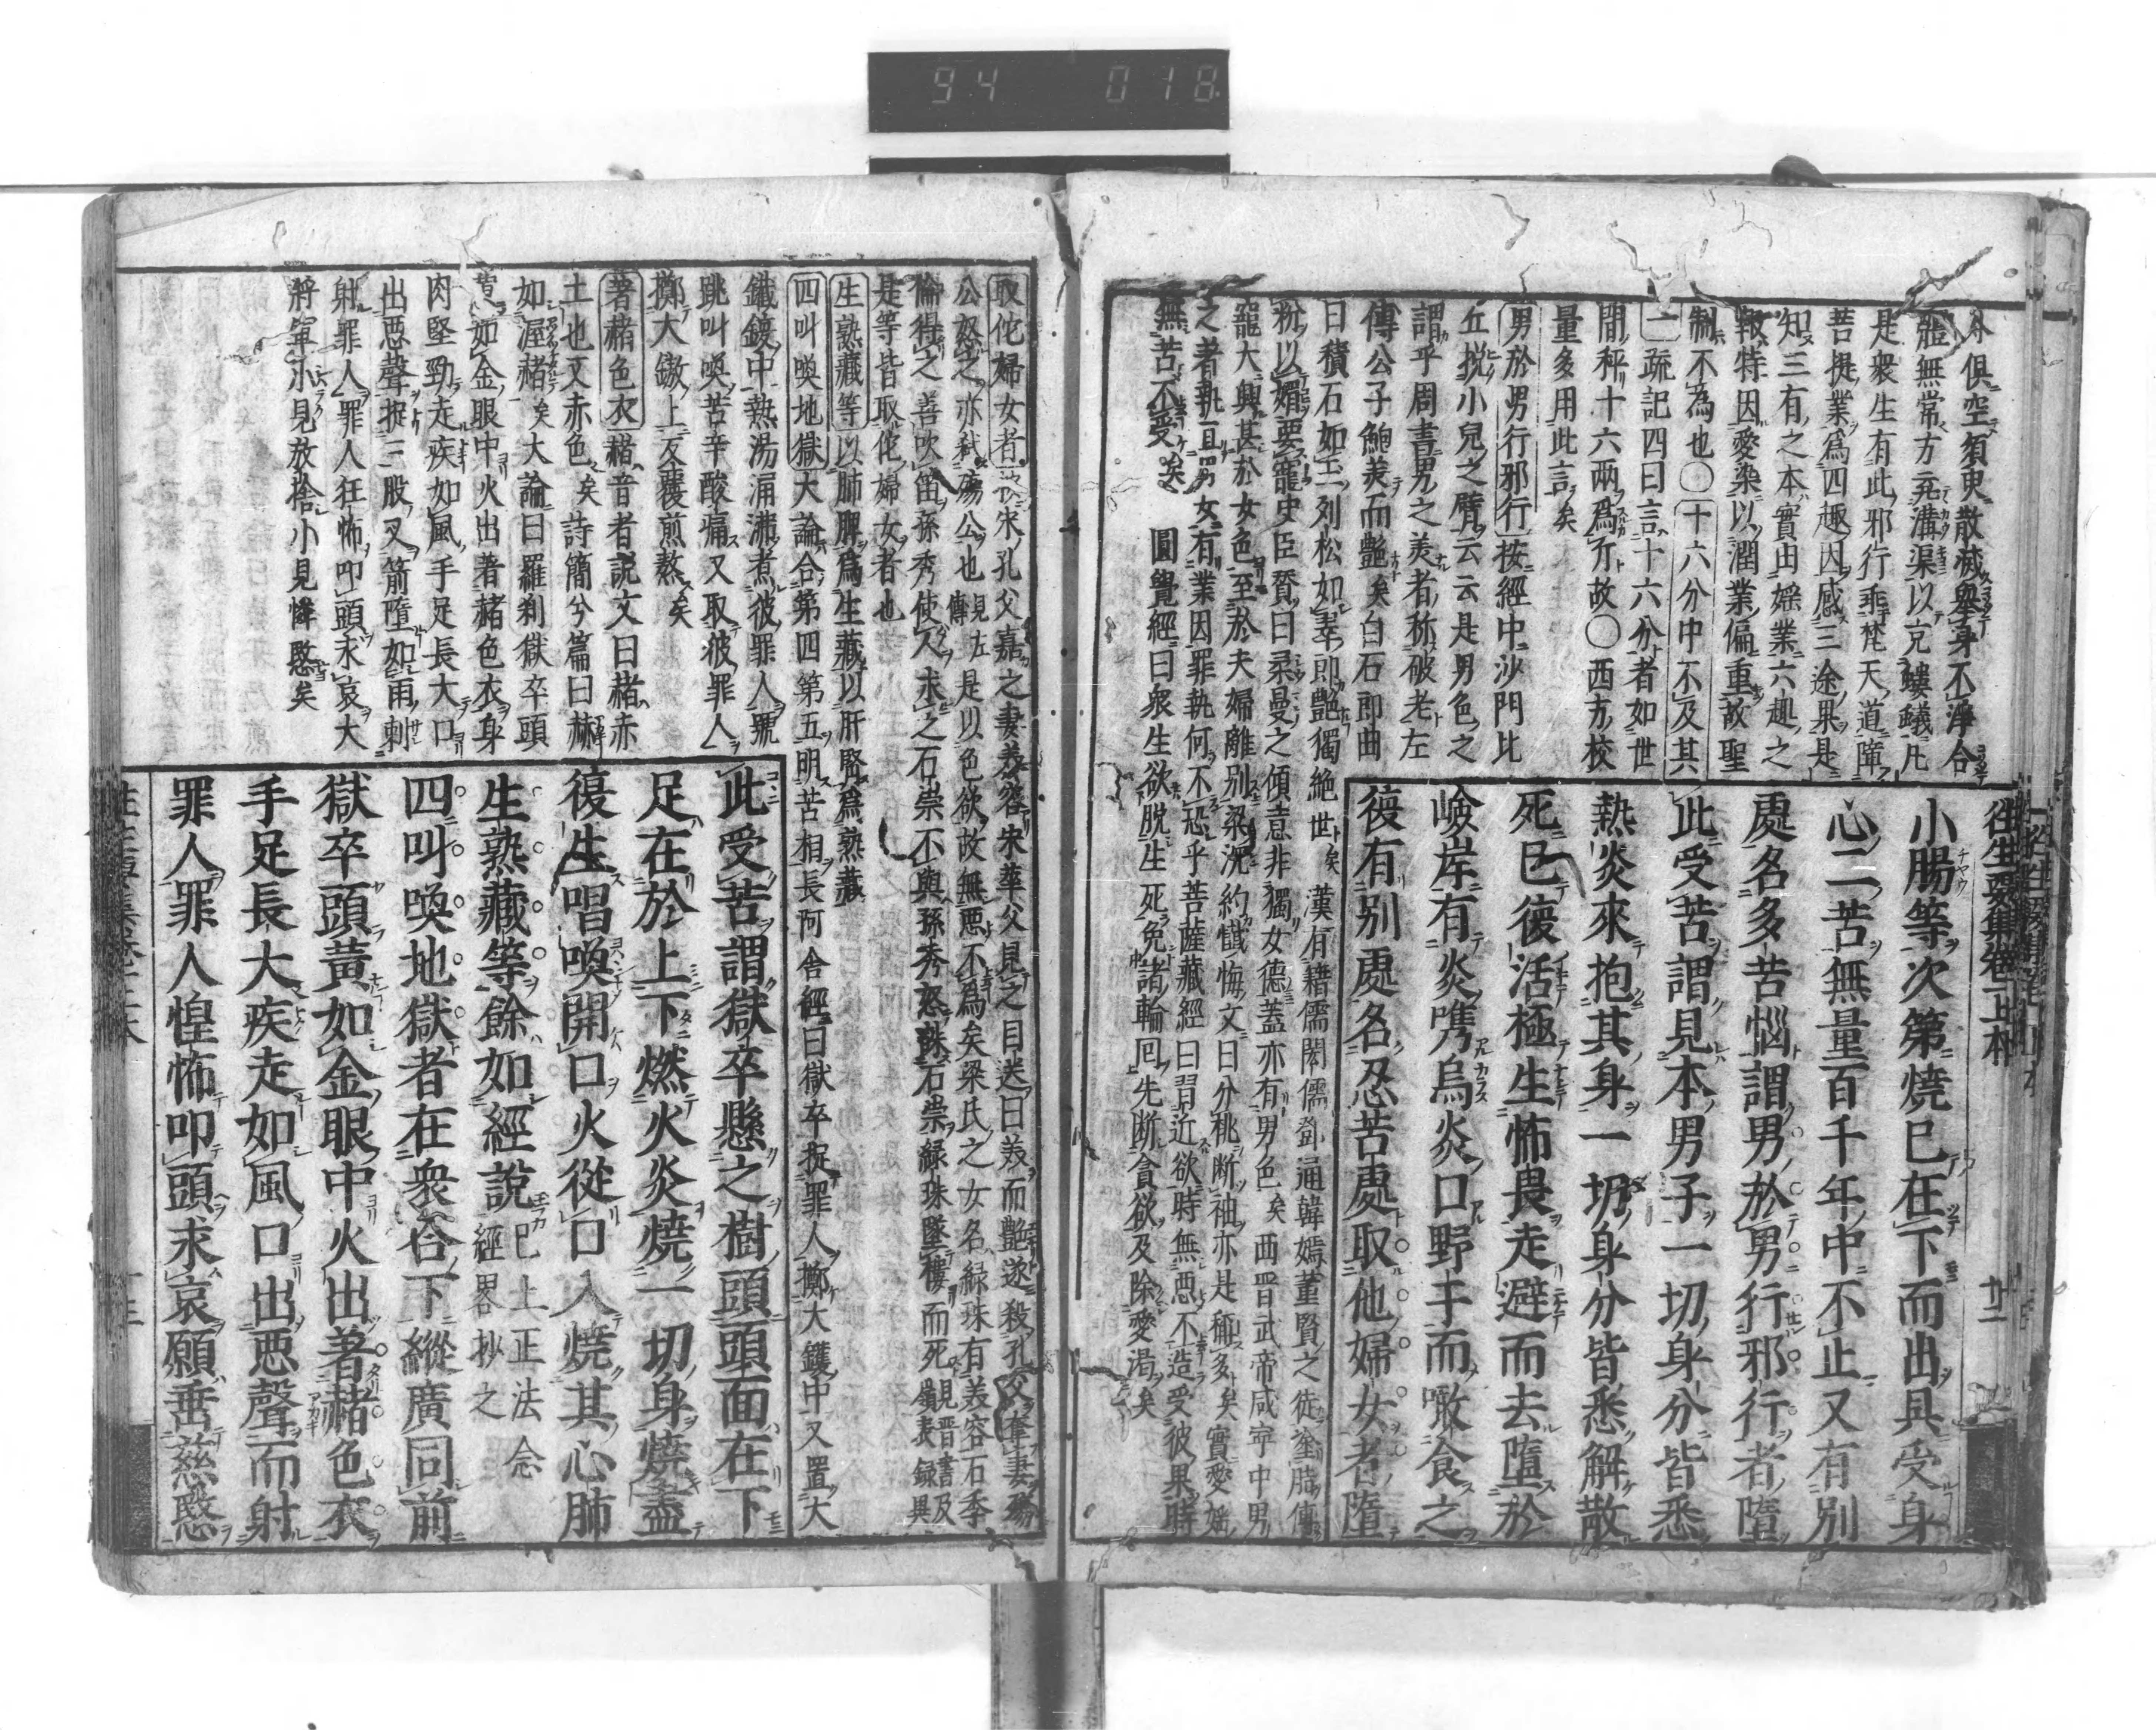 94 018
往生要集卷上本 廿二
小腸等次第燒已在下而出具受身
心二苦無量百千年中不止又有別
處名多苦惱謂男於男行邪行者墮
此受苦謂見本男子一切身分皆悉
熱炎來抱其身一切身分皆悉解散
死已復活極生怖畏走避而去墮於
嶮岸有炎嘴烏炎口野干而噉食之
復有別處名忍苦處取他婦女者墮
體無常方充溝渠以充螻蟻凡
是衆生有此邪行乖梵天道障
菩提業爲四趣因感三途果是
知三有之本實由婬業六趣之
報特因愛染以潤業偏重故聖
制不為也〇十六分中不及其
一疏記四曰言十六分者如世
間秤十六兩爲斤故〇西方校
量多用此言矣
男於男行邪行按經中沙門比
丘挽小兒之臂云云是男色之
謂乎周書男之美者称破老左
傳公子鮑美而艷矣白石即曲
曰積石如玉列松如翠郎艷獨絶世矣 漢有籍儒閎儒鄧通韓嫣董賢之徒
粉以媚要寵史臣賛曰柔曼之傾意非獨女德蓋亦有男色矣西晋武帝咸寧中男
寵大興甚於女色至於夫婦離別梁沈約懺悔文曰分桃断袖亦是稱多矣實愛婬
之者執且男女有業因罪執何不恐乎菩薩藏經曰習近欲時無悪不造受彼果時
無苦不受矣 圓覺經曰衆生欲脱生死免諸輪回先断貪欲及除愛渇矣
取佗婦女者
宋孔父嘉之妻美容宋華父見之目送曰美而艷遂殺孔父奪妻殤
公怒之亦弑殤公也見左傳是以色欲故無悪不為矣梁氏之女名緑珠有美容石季
倫得之善吹笛孫秀使人求之石崇不與孫秀怒誅石崇緑珠墜樓而死見晋書及嶺表録異
是等皆取佗婦女者也
生熟藏等以肺脾爲生藏以肝腎爲熟藏
四叫喚地獄大論合第四第五明苦相長阿含經曰獄卒捉罪人擲大鑊中又置大
鐵鏡中熱湯涌沸煮彼罪人號
跳叫喚苦辛酸痛又取彼罪人
擲大鏊上反覆煎熬矣
著赭色衣赭音者説文曰赭赤
土也又赤色矣詩簡兮篇曰赫
如渥赭矣大論曰羅刹獄卒頭
黄如金眼中火出著赭色衣身
肉堅勁走疾如風手足長大口
出悪聲捉三股叉箭墮如雨刺
射罪人罪人狂怖叩頭求哀大
將軍小見放捨小見憐愍矣
此受苦謂獄卒懸之樹頭頭面在下
足在於上下燃火炎燒一切身燒盡
復生唱喚開口火從口入燒其心肺
生熟藏等餘如經說已上正法念經畧抄之
四叫喚地獄者在衆合下縱廣同前
獄卒頭黃如金眼中火出著赭色衣
手足長大疾走如風口出悪聲而射
罪人罪人惶怖叩頭求哀願垂慈愍